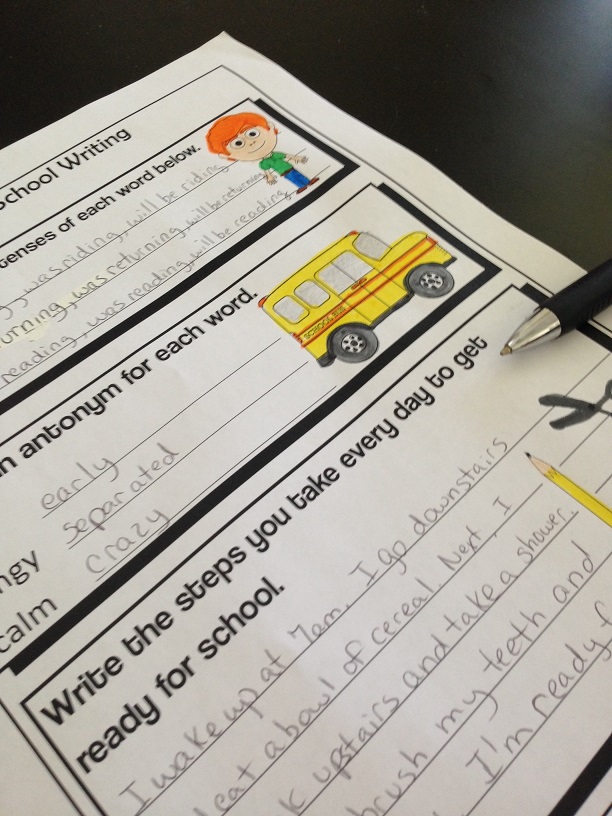 School Writing
tenses of each word below.
was riding, will be riding
was returning, will be returning
reading, was reading, will be reading
antonym for each word.
early
separated
crazy
calm
SCHOOL BUS
Write the steps you take every day to get
ready for school.
I wake up at 7am. I go downstairs
eat a bowl of cereal. Next, I
upstairs and take a shower.
brush my teeth and
I'm ready